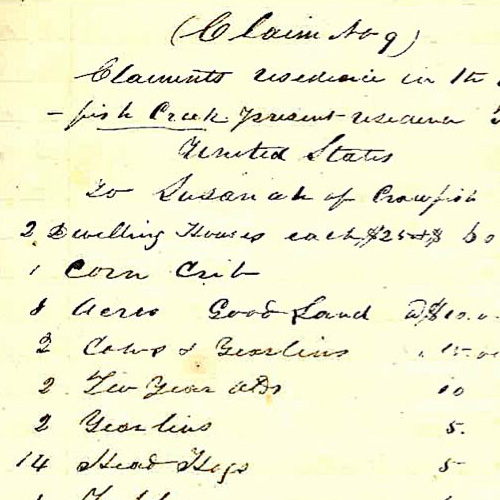 (Claim No 9)
Claiments residence in the
- fish Creek present residence
United States
To Susanah of Crawfish
2 Dwelling Houses each $25 $ 50
1 Corn Crib
8 Acres Good Land @ $10.0
2 Cows & Yearlins 15.00
2 Two Year olds 10
2 Yearlins 5.
14 Head Hogs 5